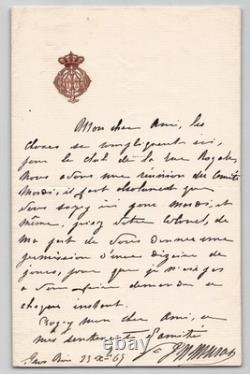 Mon cher Ami, les
choses se compliquent ici,
pour le club de la rue Royale,
nous avons une réunion du comité
Mardi, il faut absolument que
vous soyez ici pour mardi, et
même, priez votre Colonel, de
ma part de vous donner une
permission d'une dizaine de
jours, pour que je n'aie pas
à vous faire demander à
chaque instant.
Croyez mon cher Ami, à
mes sentiments d'amitié
23 X 69 Murat